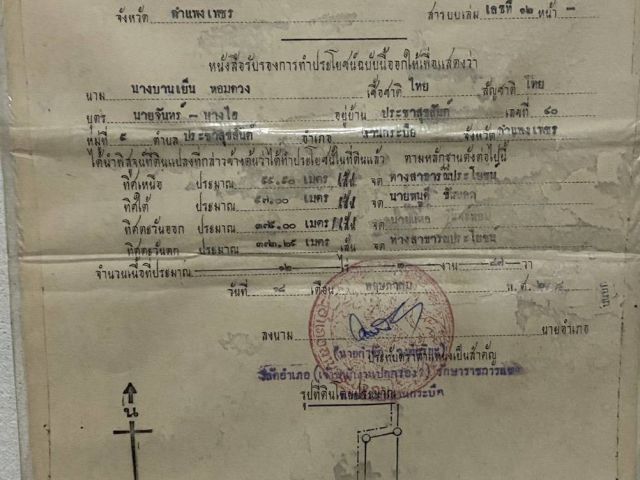 จังหวัด กำแพงเพชร สารบบเล่ม เลขที่ ๑๒ หน้า -
หนังสือรับรองการทำประโยชน์ฉบับนี้ออกให้เพื่อแสดงว่า
นาม นางบานเย็น หอมดวง เชื้อชาติ ไทย สัญชาติ ไทย
บุตร นายจันทร์ - นางไธ อยู่บ้าน ประชาสุขสันต์ เลขที่ ๙๐
หมู่ที่ ๕ ตำบล ประชาสุขสันต์ อำเภอ ลานกระบือ จังหวัด กำแพงเพชร
ได้นำพิสูจน์ที่ดินแปลงที่กล่าวข้างต้นว่าได้ทำประโยชน์ในที่ดินแล้ว ตามหลักฐานดังต่อไปนี้
ทิศเหนือ ประมาณ ๕๕.๕๐ เมตร เส้น จด ทางสาธารณประโยชน์
ทิศใต้ ประมาณ ๕๗.๐๐ เมตร เส้น จด
ทิศตะวันออก ประมาณ ๓๗๕.๐๐ เมตร เส้น จด
ทิศตะวันตก ประมาณ ๓๗๒.๒๕ เมตร เส้น จด ทางสาธารณประโยชน์
จำนวนเนื้อที่ประมาณ ๑๒ ไร่ ๓ งาน ๘๗ วา
วันที่ ๑๘ เดือน พฤษภาคม พ.ศ.
ลงนาม นายอำเภอ
ประทับตราตำแหน่งเป็นสำคัญ
ปลัดอำเภอ (เจ้าพนักงานปกครอง) รักษาราชการแทน
รูปที่ดินโดยประมาณ
น